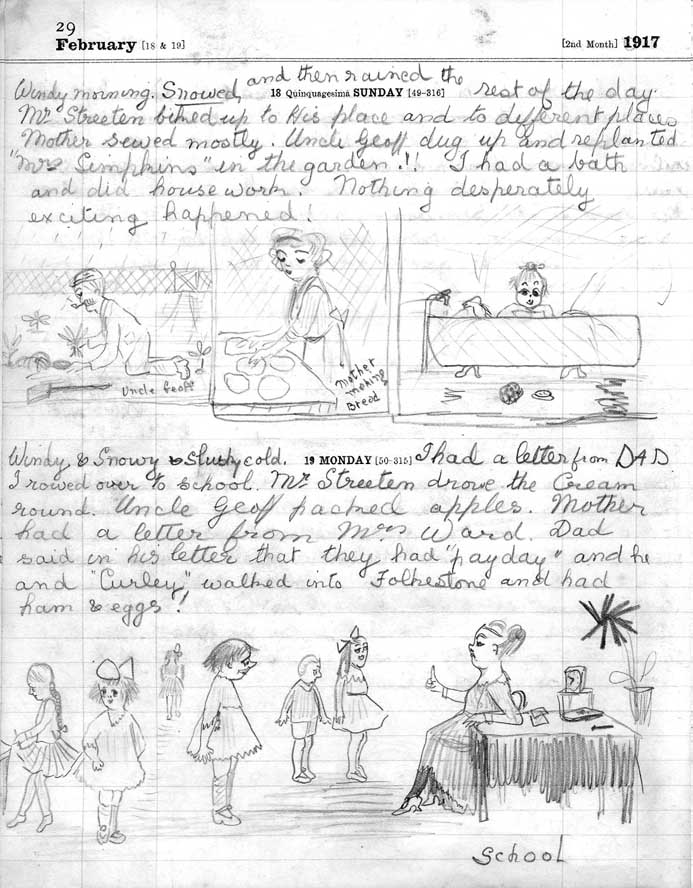 29
February [18 & 19] [2nd Month] 1917
Windy morning. Snowed, and then rained the rest of the day.
18 Quinquagesima SUNDAY [49-316]
Mr Streeten biked up to His place and to different places
Mother sewed mostly. Uncle Geoff dug up and replanted
"Mrs Simpkins" in the garden.!! I had a bath
and did housework. Nothing desperately
exciting happened!
Uncle Geoff
Mother
making
Bread
Windy, & Snowy & Slushy cold. 19 MONDAY [50-315] I had a letter from DAD
I rowed over to school. Mr Streeten drove the Cream
round. Uncle Geoff packed apples. Mother
had a letter from Mrs Ward. Dad
said in his letter that they had "payday" and he
and "Curley" walked into Folkestone and had
ham & eggs!
School